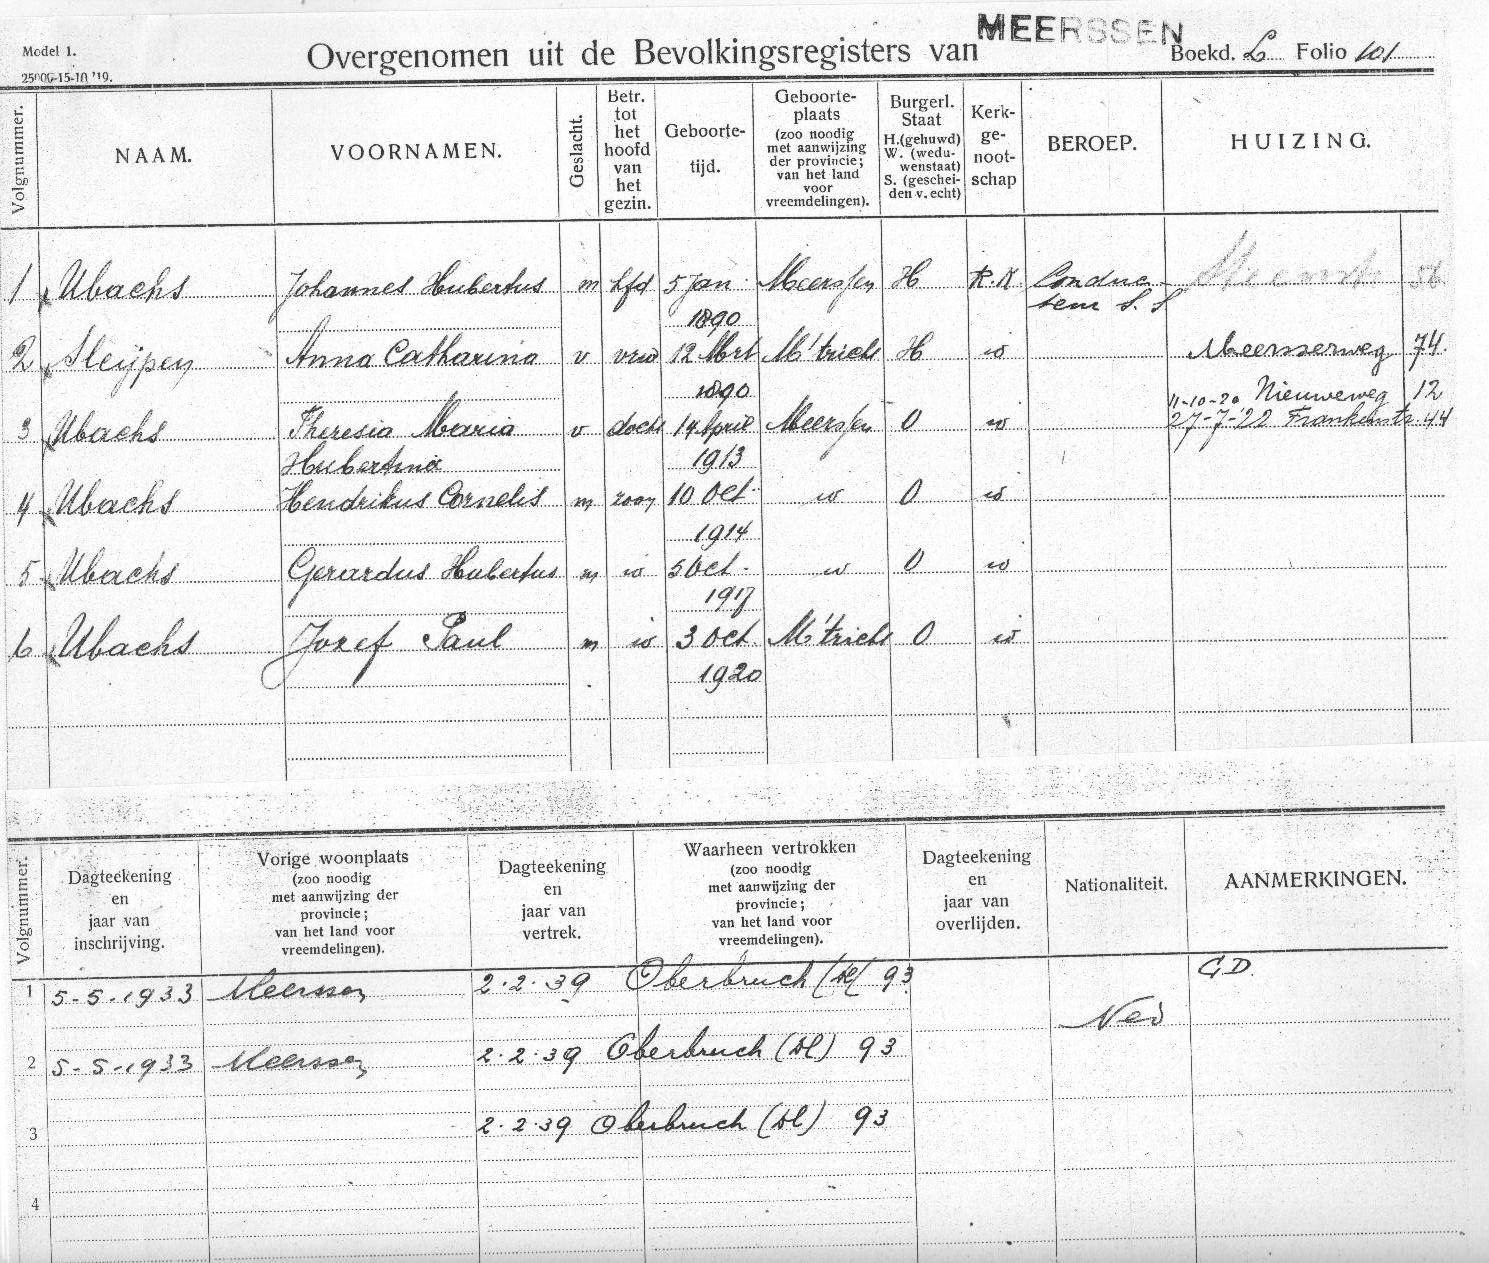 MEERSSEN
Model 1.
25000-15-10 '19.
Overgenomen uit de Bevolkingsregisters van
Boekd. L Folio 101
Volgnummer.
NAAM.
VOORNAMEN.
Geslacht.
Betr.
tot
het
hoofd
van
het
gezin.
Geboorte-
tijd.
Geboorte-
plaats
(zoo noodig
met aanwijzing
der provincie;
van het land
voor
vreemdelingen).
Burgerl.
Staat
H.(gehuwd)
W. (wedu-
wenstaat)
S. (geschei-
den v. echt)
Kerk-
ge-
noot-
schap
BEROEP.
HUIZING.
1 Ubachs Johannes Hubertus m hfd 5 Jan Meerssen H R.K. Conduc-
1890 teur S.S
2 Sleijpen Anna Catharina v vrw 12 Mrt M'tricht H id Meersserweg 74
1890 11-10-20 Nieuweweg 12
3 Ubachs Theresia Maria v docht 14 April Meerssen O id 27-7-'22 Frankenstr. 44
Hubertina 1913
4 Ubachs Hendrikus Cornelis m zoon 10 Oct. id O id
1914
5 Ubachs Gerardus Hubertus m id 5 Oct. id O id
1917
6 Ubachs Jozef Paul m id 3 Oct. M'tricht O id
1920
Volgnummer.
Dagteekening
en
jaar van
inschrijving.
Vorige woonplaats
(zoo noodig
met aanwijzing der
provincie;
van het land voor
vreemdelingen).
Dagteekening
en
jaar van
vertrek.
Waarheen vertrokken
(zoo noodig
met aanwijzing der
provincie;
van het land voor
vreemdelingen).
Dagteekening
en
jaar van
overlijden.
Nationaliteit.
AANMERKINGEN.
1 5-5-1933 Meerssen 2.2.39 Oberbruch (Dl) 93 G.D.
Ned
2 5-5-1933 Meerssen 2.2.39 Oberbruch (Dl) 93
3 2.2.39 Oberbruch (Dl) 93
4